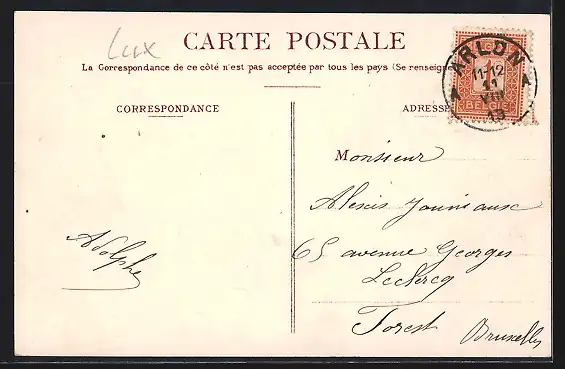 Lux
CARTE POSTALE
La Correspondance de ce côté n'est pas acceptée par tous les pays (Se renseigne
CORRESPONDANCE
ADRESSE
ARLON
11-12
11
VIII
13
1
BELGIË
Monsieur
Alexis Jouniaux
65 avenue Georges
Leclercq
Forest Bruxelles
Adolphe